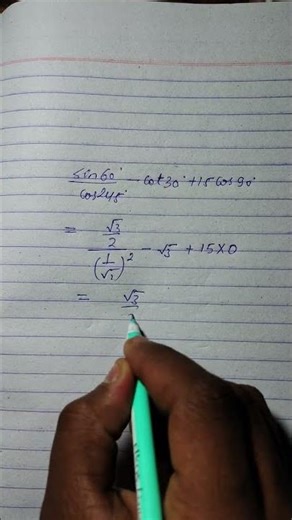 sin60°/cos²45° - cot30° + 15cos90°
= (√3/2)/(1/√2)² - √3 + 15×0
= √3/